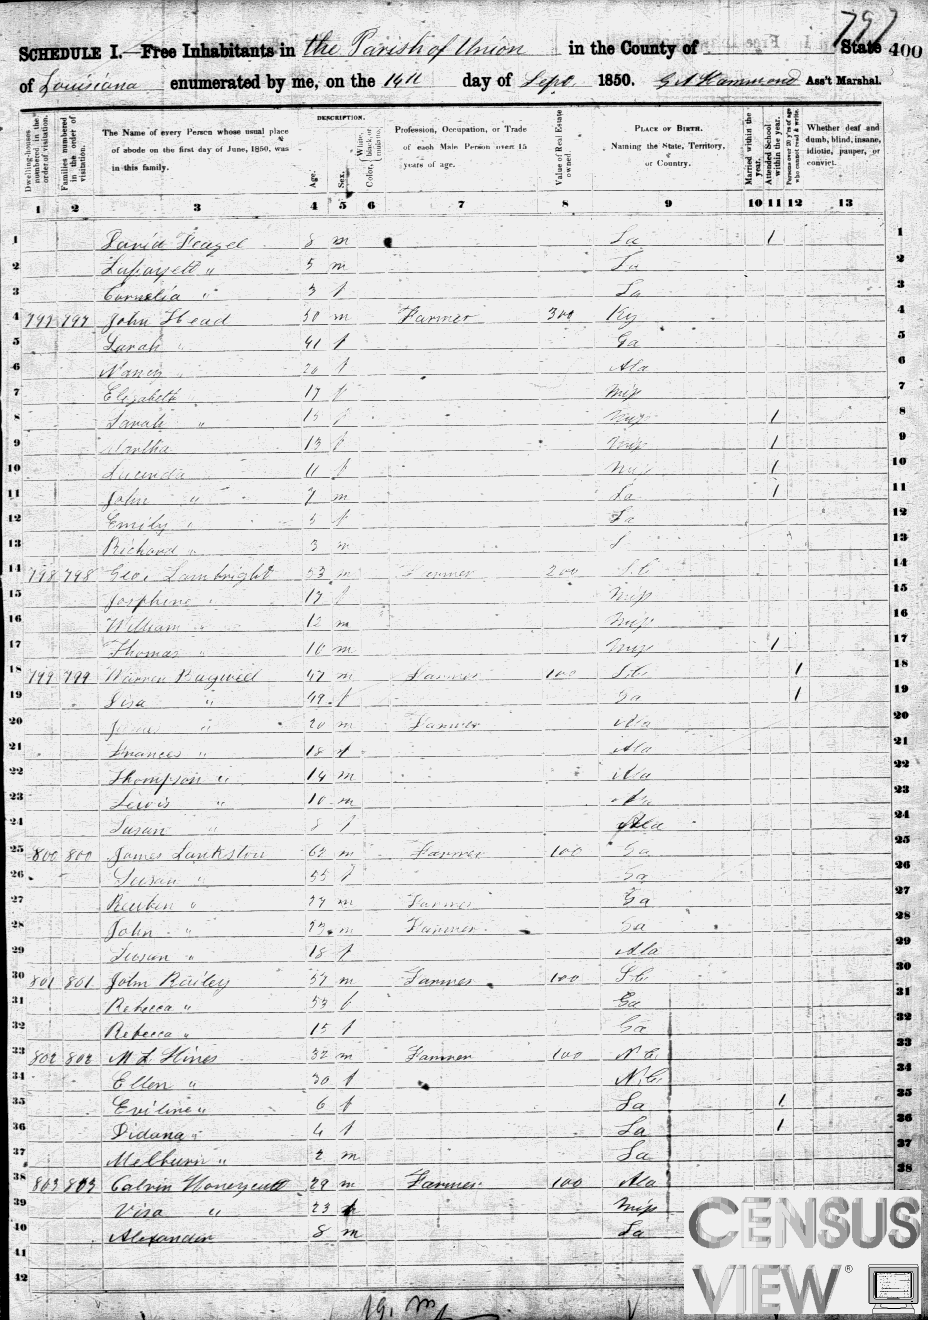 797
SCHEDULE I.—Free Inhabitants in the Parish of Union in the County of State 400
of Louisiana enumerated by me, on the 14th day of Sept. 1850. G A Hammond Ass't Marshal.
Dwelling-houses numbered in the order of visitation.
Families numbered in the order of visitation.
The Name of every Person whose usual place of abode on the first day of June, 1850, was in this family.
DESCRIPTION.
Age.
Sex.
Color, White, black, or mulatto.
Profession, Occupation, or Trade of each Male Person over 15 years of age.
Value of Real Estate owned.
PLACE OF BIRTH. Naming the State, Territory, or Country.
Married within the year.
Attended School within the year.
Persons over 20 y'rs of age who cannot read & write.
Whether deaf and dumb, blind, insane, idiotic, pauper, or convict.
1 2 3 4 5 6 7 8 9 10 11 12 13
1 David 8 m La 1 1
2 Lafayett " 5 m La 2
3 Cornelia " 3 f La 3
4 797 797 John Head 50 m Farmer 300 Ky 4
5 Sarah " 41 f Ga 5
6 Nancy " 20 f Ala 6
7 Elizabeth 17 f Mip 7
8 Sarah " 15 f Mip 1 8
9 Martha 13 f Mip 1 9
10 Lucinda 11 f Mip 1 10
11 John " 7 m La 1 11
12 Emily " 5 f La 12
13 Richard " 3 m 13
14 798 798 Geo. Lambright 53 m Farmer 200 S.C 14
15 Josephine " 17 f Mip 15
16 William " 12 m Mip 16
17 Thomas " 10 m Mip 1 17
18 799 799 Warren Bagwell 47 m Farmer 100 S.C. 1 18
19 " 49 f Ga 1 19
20 " 20 m Farmer Ala 20
21 Frances " 18 f Ala 21
22 Thompson " 14 m Ala 22
23 Lewis " 10 m Ala 23
24 Susan " 8 f Ala 24
25 800 800 James Lankston 62 m Farmer 100 Ga 25
26 Susan " 55 f Ga 26
27 Reuben " 27 m Farmer Ga 27
28 John " 23 m Farmer Ga 28
29 Susan " 18 f Ala 29
30 801 801 John Bailey 57 m Farmer 100 S.C 30
31 Rebecca " 53 f Ga 31
32 Rebecca " 15 f Ga 32
33 802 802 M L Hines 32 m Farmer 100 N C. 33
34 Ellen " 30 f N.C. 34
35 Eviline " 6 f La 1 35
36 Didana " 4 f La 1 36
37 Melburn " 2 m La 37
38 803 803 Calvin Honeycutt 29 m Farmer 100 Ala 38
39 Visa " 23 f Mip
40 Alexander 8 m La
41
42
19. m
CENSUS
VIEW®